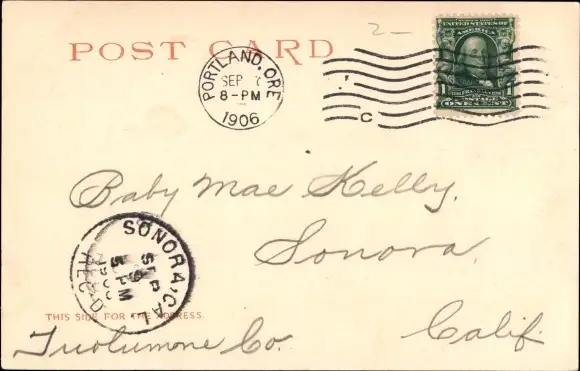 2 —
POST CARD
PORTLAND, ORE
SEP 7
8-PM
1906
UNITED STATES OF
AMERICA
1 1
POSTAGE
ONE CENT
C
Baby Mae Kelly.
Sonora.
SONORA, CAL
SEP
9
5 PM
1906
REC'D
THIS SIDE FOR THE ADDRESS.
Tuolumone Co. Calif.